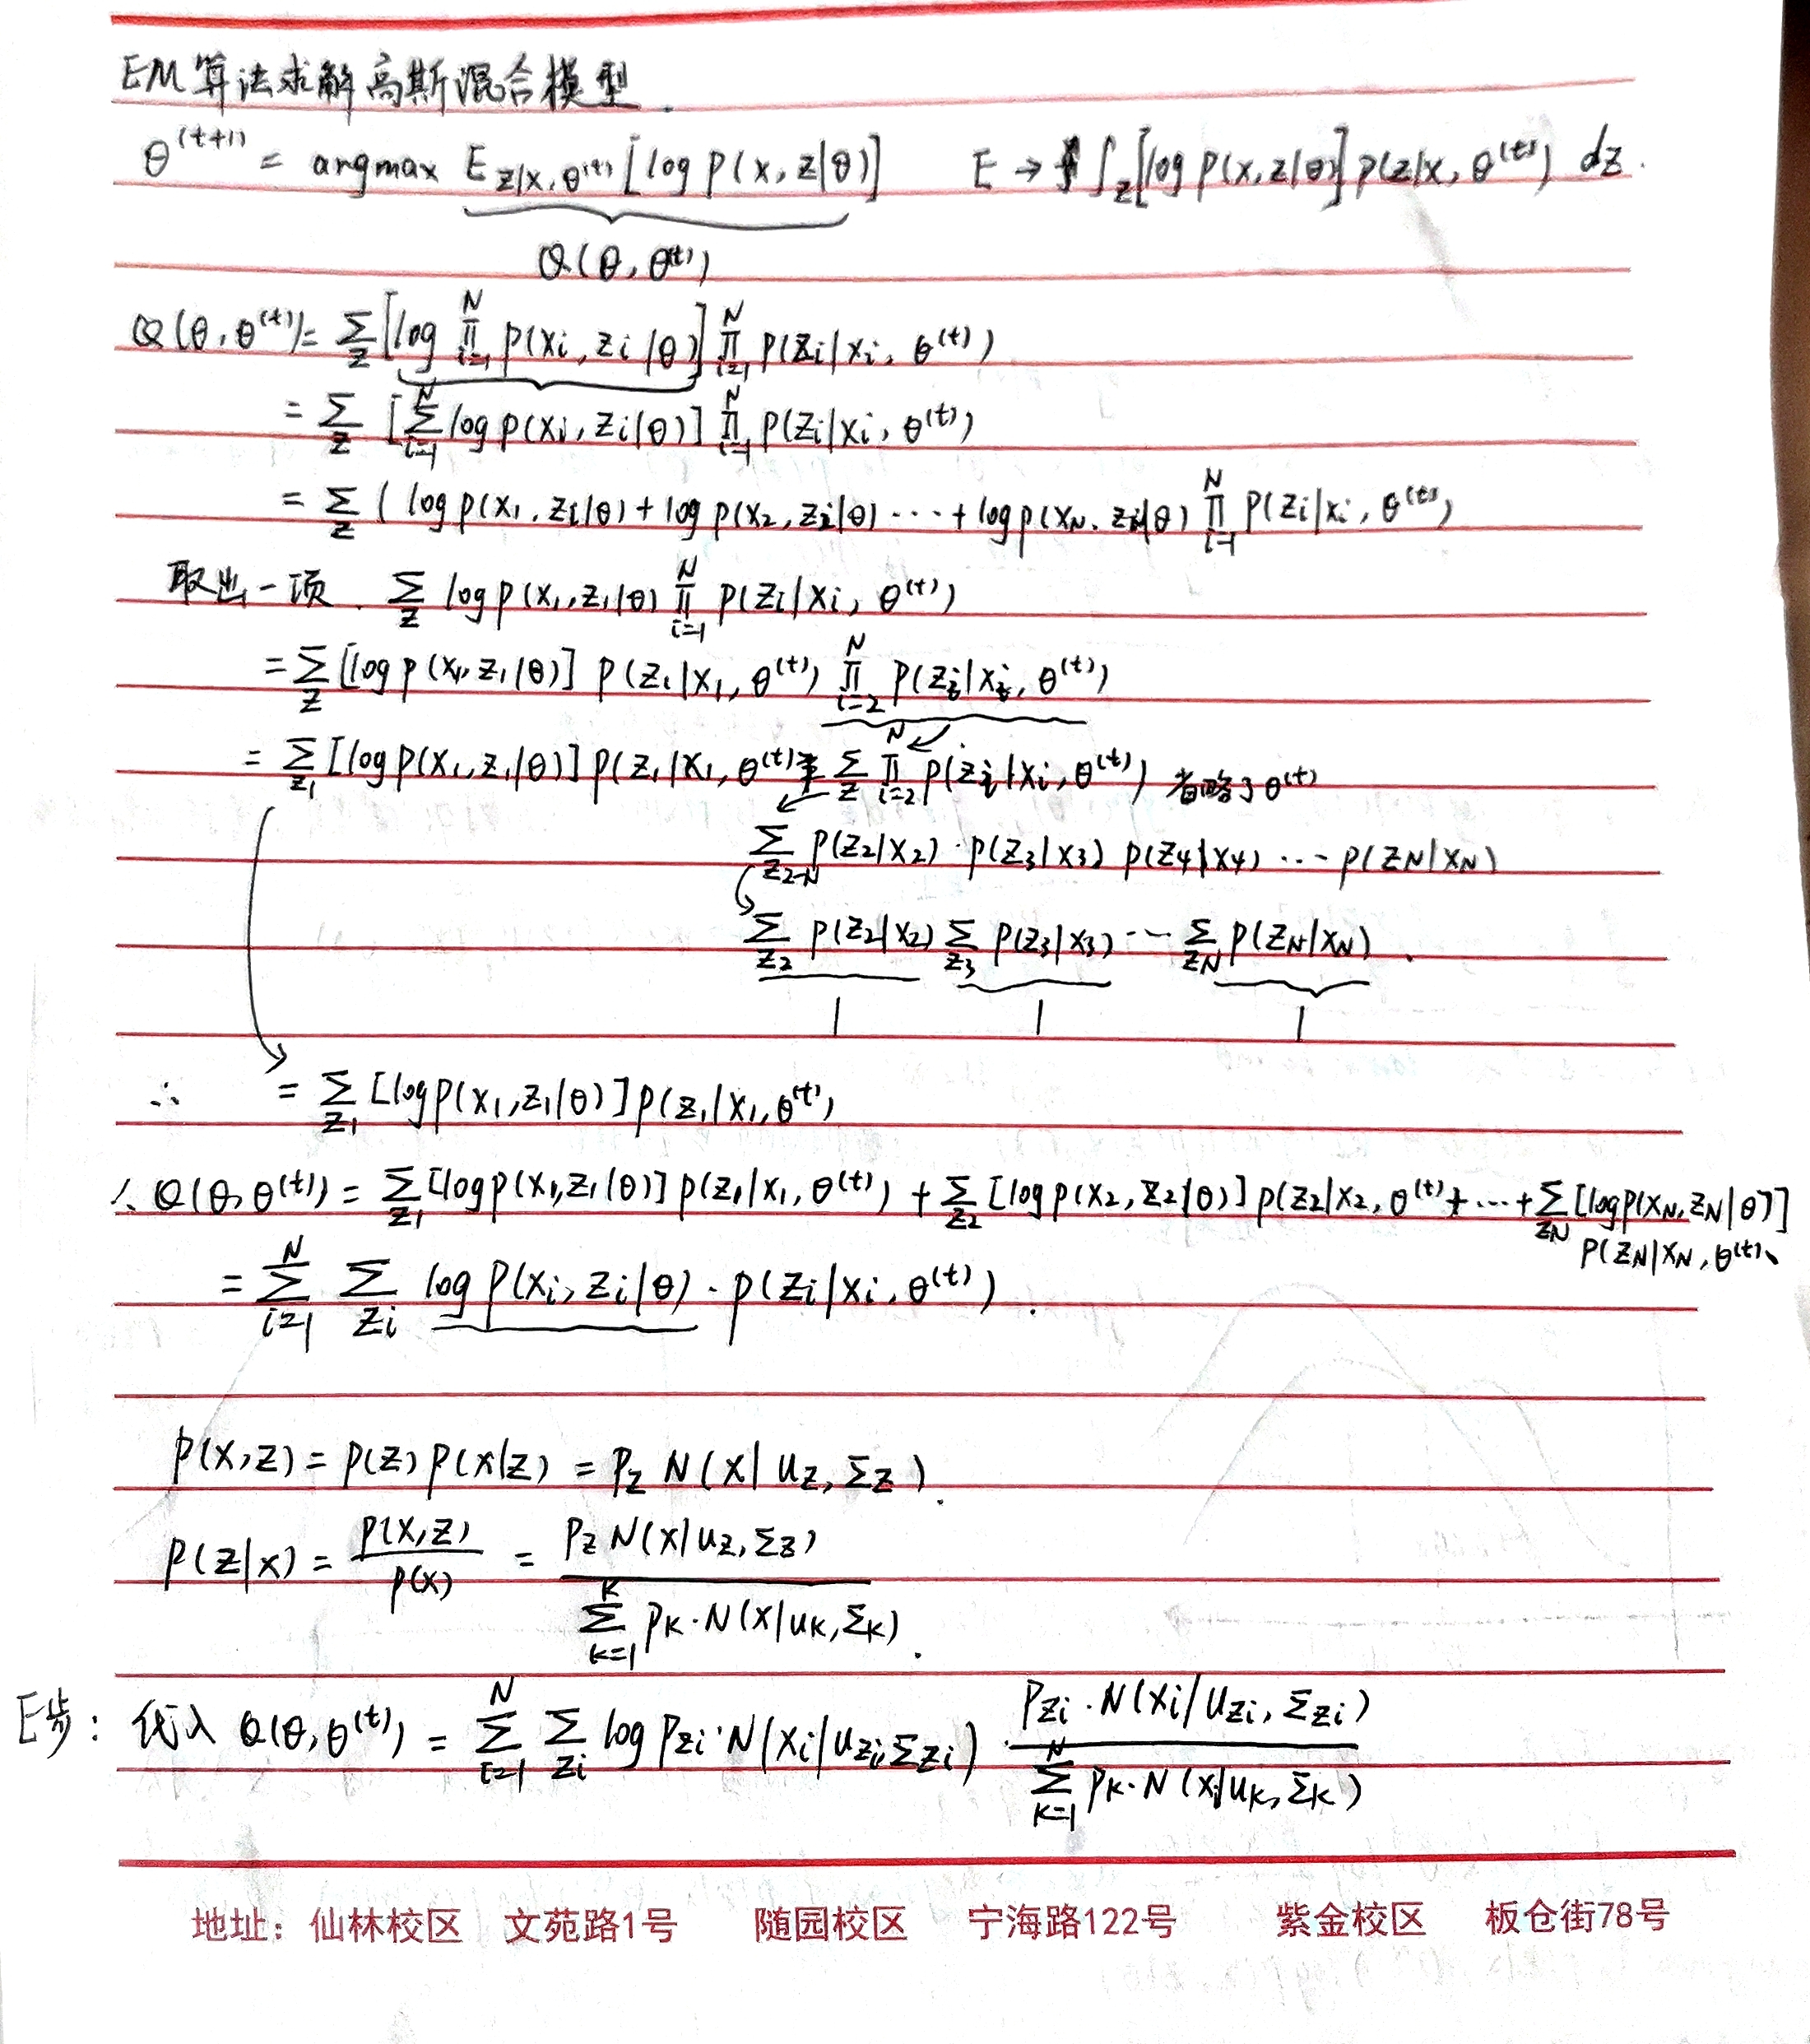 EM算法求解高斯混合模型.
θ^(t+1) = argmax E_{z|x,θ^(t)} [log p(x, z|θ)]    E → ∫_z [log p(x,z|θ)] p(z|x, θ^(t)) dz.
Q(θ, θ^(t))
Q(θ, θ^(t)) = Σ_z [log Π_{i=1}^N p(xi, zi|θ)] Π_{i=1}^N p(zi|xi, θ^(t))
= Σ_z [Σ_{i=1}^N log p(xi, zi|θ)] Π_{i=1}^N p(zi|xi, θ^(t))
= Σ_z (log p(x1, z1|θ) + log p(x2, z2|θ) ··· + log p(xN, zN|θ) Π_{i=1}^N p(zi|xi, θ^(t))
取出一项. Σ_z log p(x1, z1|θ) Π_{i=1}^N p(zi|xi, θ^(t))
= Σ_z [log p(x1, z1|θ)] p(z1|x1, θ^(t)) Π_{i=2}^N p(zi|xi, θ^(t))
= Σ_{z1} [log p(x1, z1|θ)] p(z1|x1, θ^(t)) Σ_z Π_{i=2}^N p(zi|xi, θ^(t)) 省略了θ^(t)
Σ_{z2-N} p(z2|x2) · p(z3|x3) p(z4|x4) ··· p(zN|xN)
Σ_{z2} p(z2|x2) Σ_{z3} p(z3|x3) ··· Σ_{zN} p(zN|xN).
1 1 1
∴ = Σ_{z1} [log p(x1, z1|θ)] p(z1|x1, θ^(t))
∴ Q(θ, θ^(t)) = Σ_{z1} [log p(x1, z1|θ)] p(z1|x1, θ^(t)) + Σ_{z2} [log p(x2, z2|θ)] p(z2|x2, θ^(t)) + ··· + Σ_{zN} [log p(xN, zN|θ)]
p(zN|xN, θ^(t))
= Σ_{i=1}^N Σ_{zi} log p(xi, zi|θ) · p(zi|xi, θ^(t)).
p(x, z) = p(z) p(x|z) = p_z N(x|u_z, Σ_z).
p(z|x) = p(x,z)/p(x) = p_z N(x|u_z, Σ_z) / Σ_{k=1}^K p_k · N(x|u_k, Σ_k).
E步: 代入 Q(θ, θ^(t)) = Σ_{i=1}^N Σ_{zi} log p_{zi} · N(xi|u_{zi}, Σ_{zi}) · p_{zi} · N(xi|u_{zi}, Σ_{zi}) / Σ_{k=1}^N p_k · N(xi|u_k, Σ_k)
地址：仙林校区 文苑路1号 随园校区 宁海路122号 紫金校区 板仓街78号